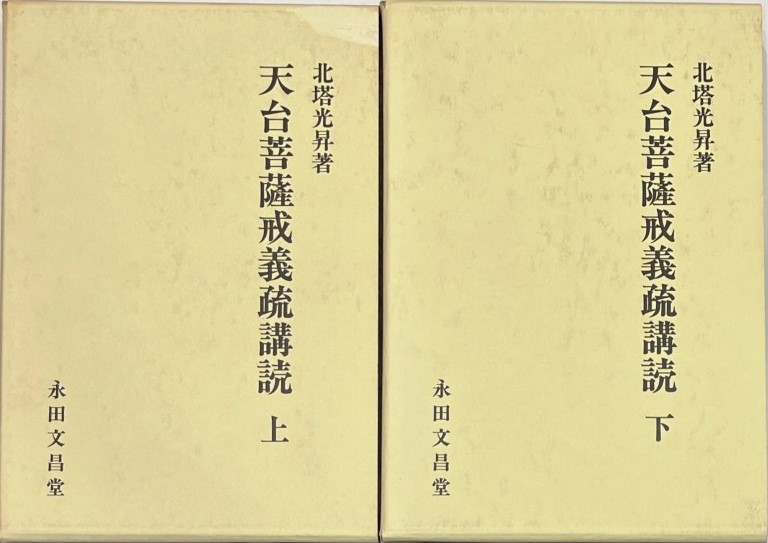 北塔光昇著
天台菩薩戒義疏講読 上
永田文昌堂
北塔光昇著
天台菩薩戒義疏講読 下
永田文昌堂